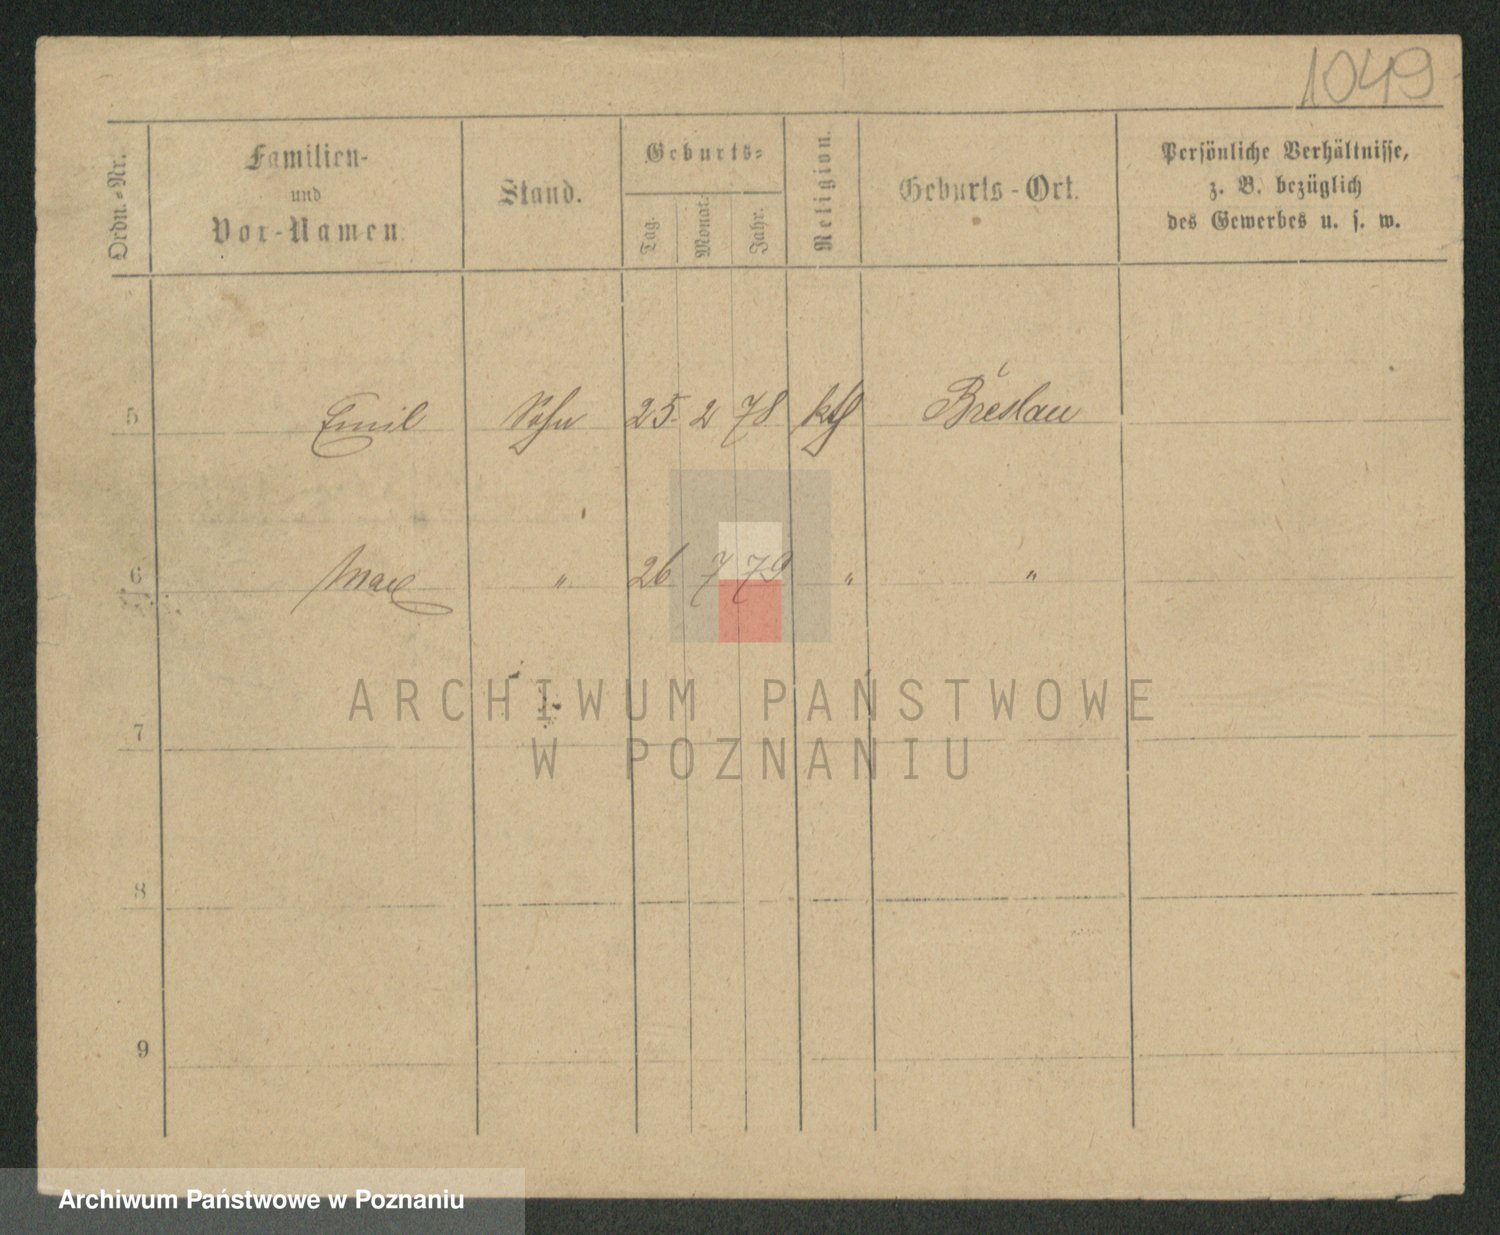 1049
Ordn.-Nr. Familien- und Vor-Namen Stand. Geburts- Tag. Monat. Jahr. Religion. Geburts-Ort. Persönliche Verhältnisse, z. B. bezüglich des Gewerbes u. s. w.
5 Emil Sohn 25. 2 78 kth Breslau
6 Max " 26 7 79 " "
7
8
9
ARCHIWUM PAŃSTWOWE
W POZNANIU
Archiwum Państwowe w Poznaniu